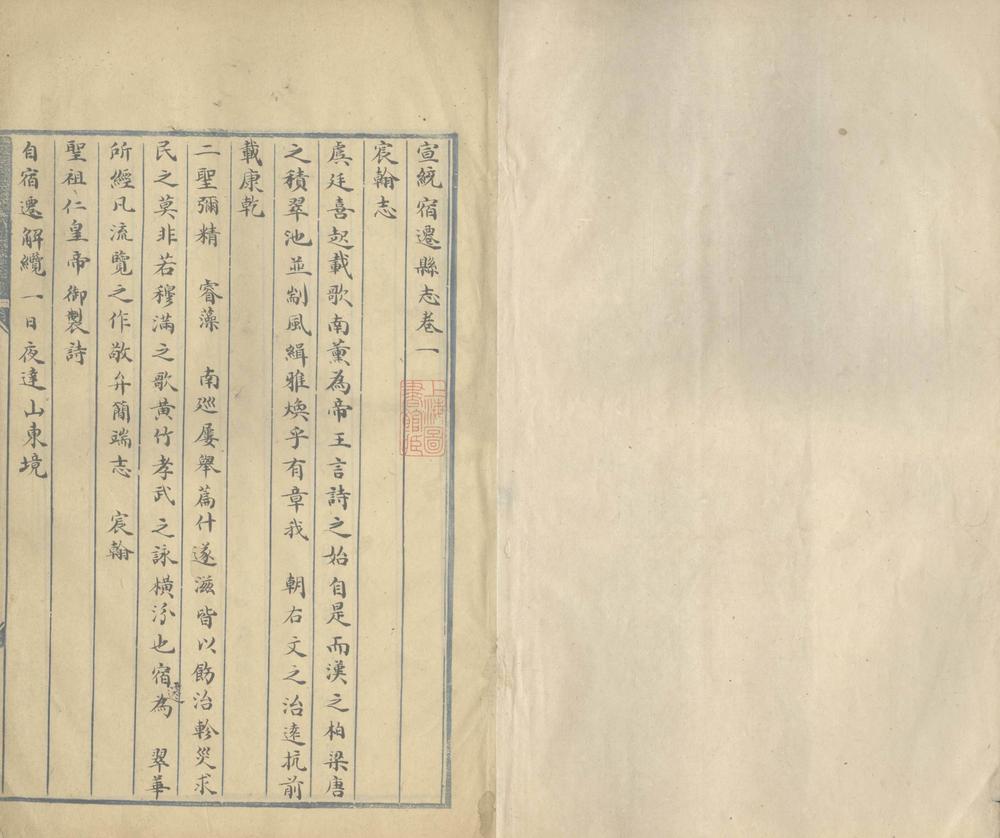 宣統宿遷縣志卷一
宸翰志
虞廷喜起載歌南薰為帝王言詩之始自是而漢之柏梁唐
之積翠池並剬風緝雅煥乎有章我　朝右文之治遠抗前
載康乾
二聖彌精　睿藻　南廵屢舉篇什遂滋皆以飭治軫災求
民之莫非若穆滿之歌黃竹孝武之詠橫汾也宿遷為　翠華
所經凡流覽之作敬弁簡端志　宸翰
聖祖仁皇帝御製詩
自宿遷解纜一日夜達山東境
上海圖
書館藏